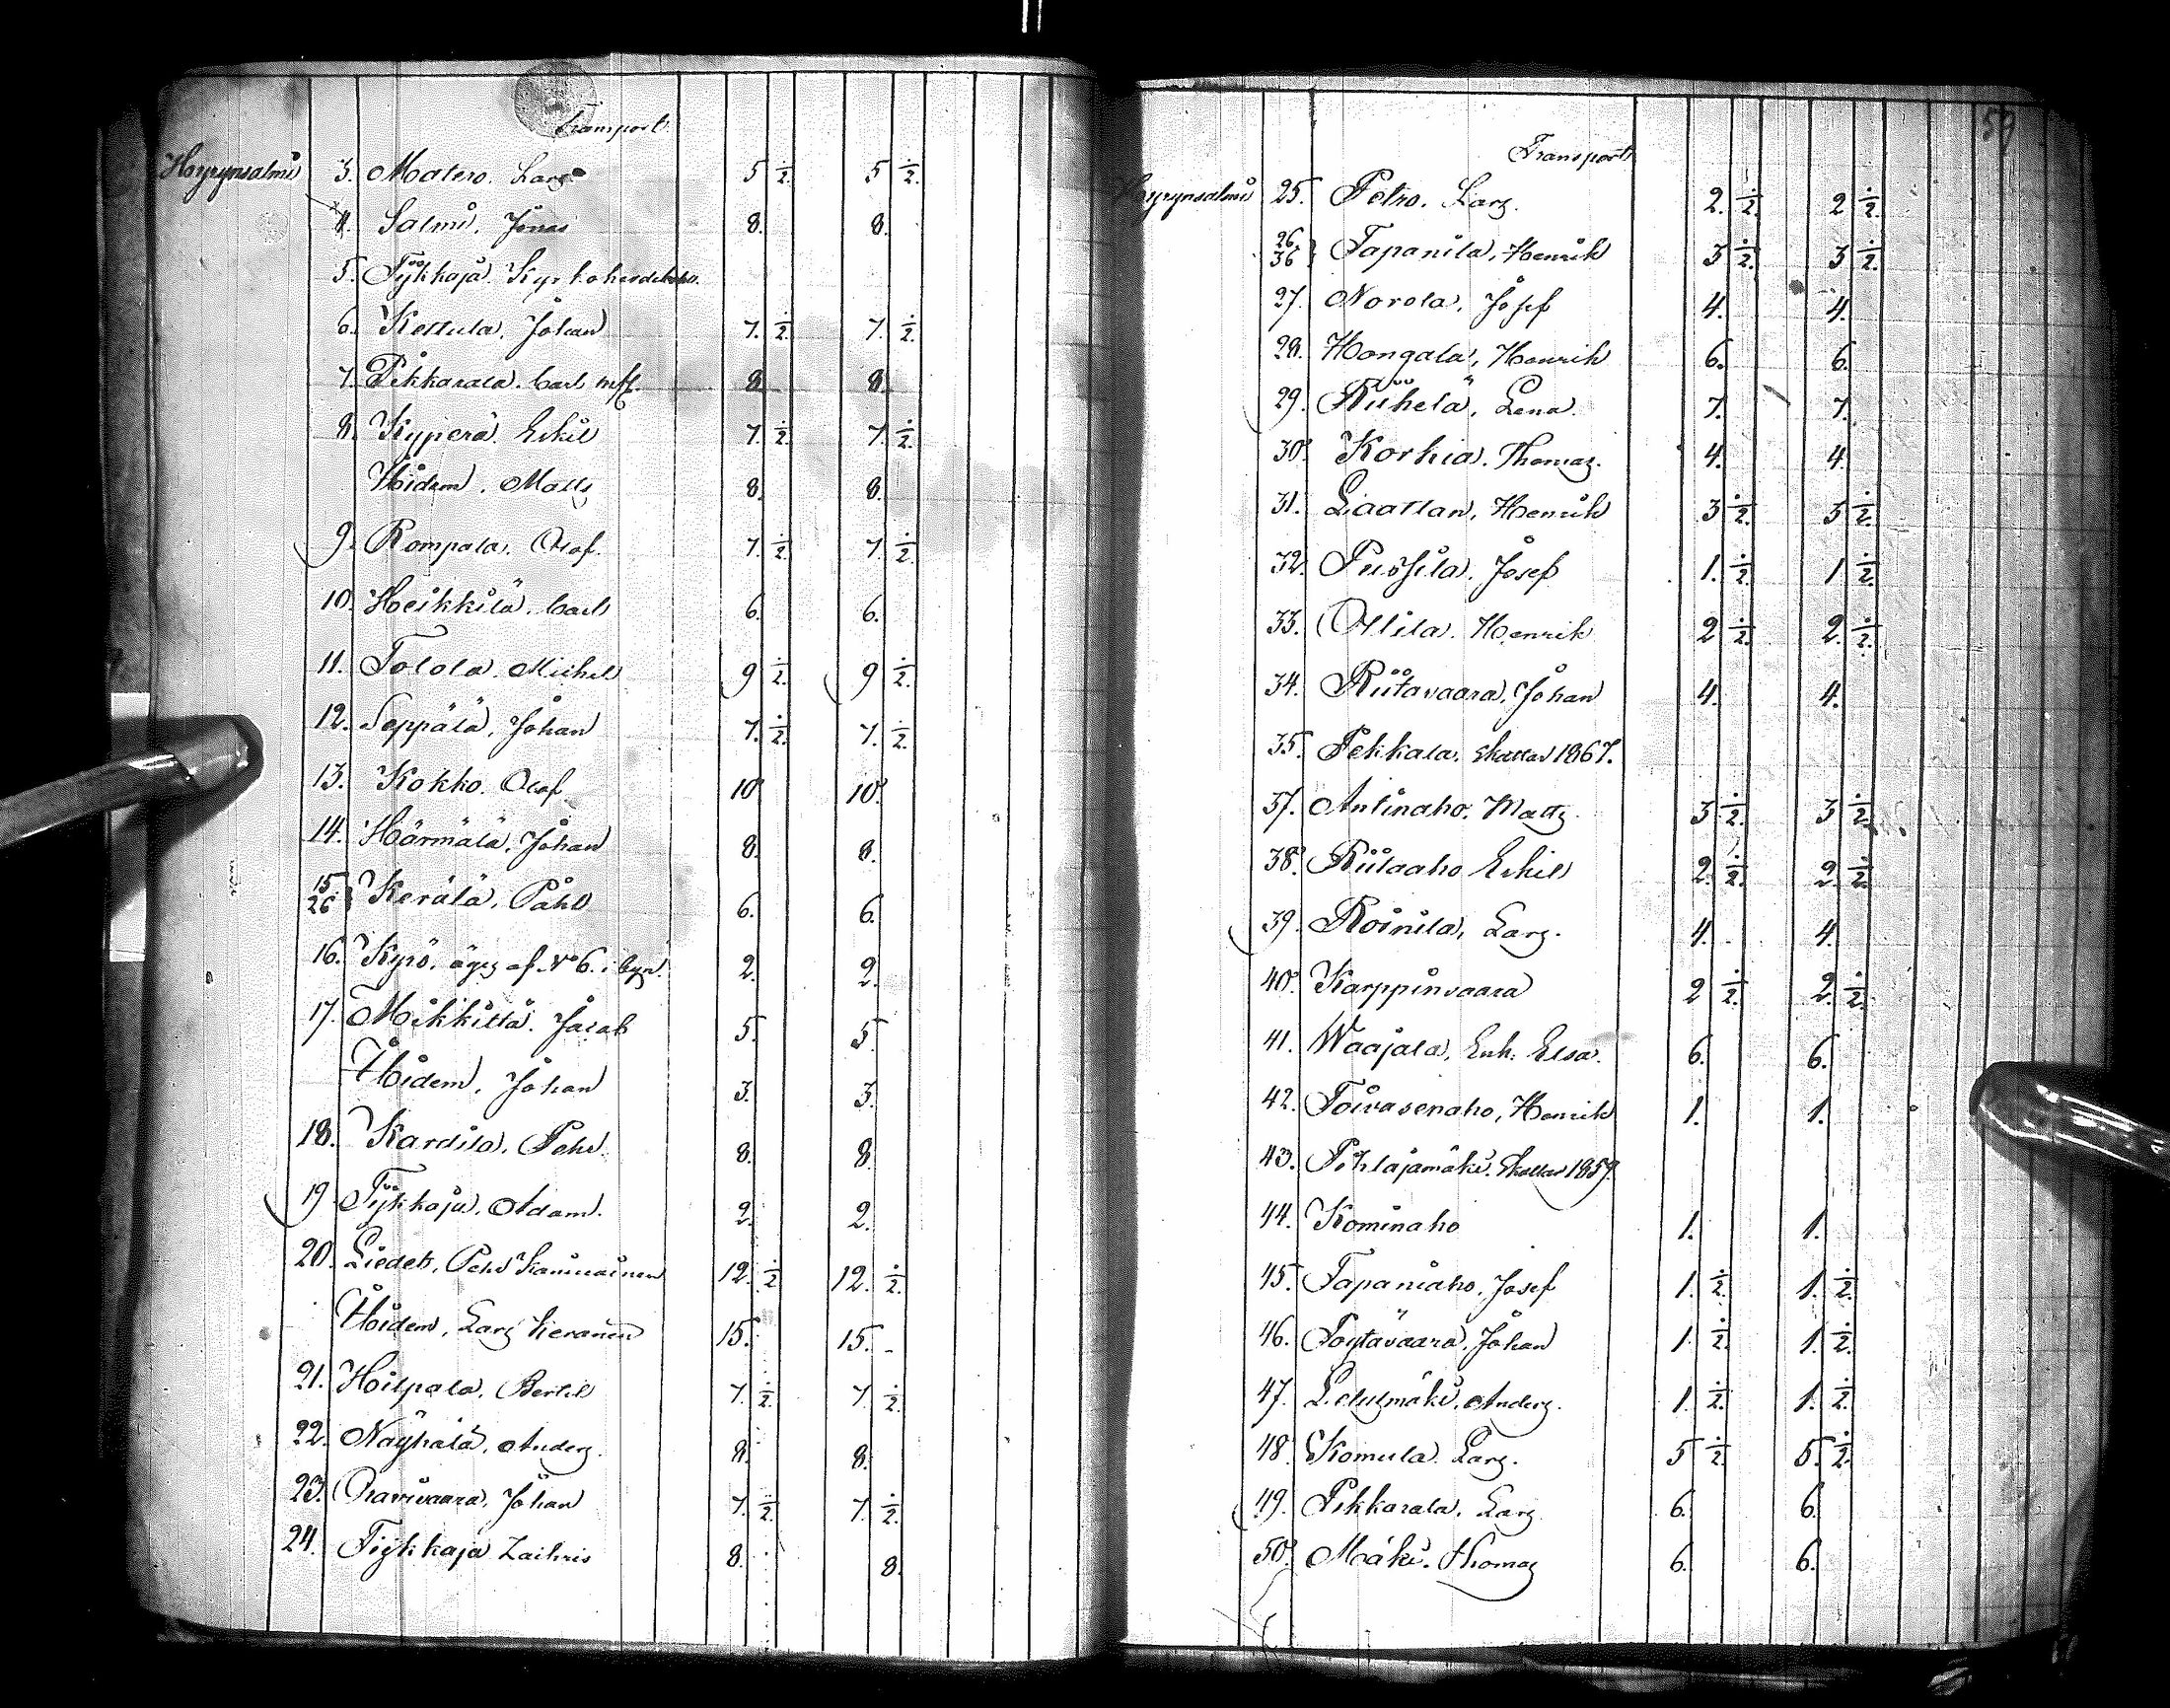 Transport
Hyrynsalmi 3. Matero. Lars 5 ½. 5 ½.
4. Salmi, Jonas 8. 8.
5. Tykkäjä. Kyrkoherdeboh.
6. Kettula, Johan 7. ½. 7. ½.
7. Pikkarala. Carl mfl. 8. 8.
8. Kyperä. Eskil 7. ½. 7. ½.
Ibidem. Matts 8. 8.
9. Rompala. Olof. 7. ½. 7. ½.
10. Heikkilä. Carl 6. 6.
11. Tolola. Michel 9 ½. 9 ½.
12. Seppälä, Johan 7. ½. 7. ½.
13. Kokko. Olof 10. 10.
14. Härmälä, Johan 8. 8.
15. 26. } Kerälä, Påhl 6. 6.
16. Kyrö. äges af No 6. i byn. 2. 2.
17. Mikkilä. Jacob 5. 5.
Ibidem, Johan 3. 3.
18. Kardila, Pehr. 8. 8.
19 Tykkäjä. Adam. 2. 2.
20. Liedes, Pehr 12. ½ 12. ½.
Ibidem, Lars Keränen 15. 15.
21. Hilpala. Bertil 7. ½. 7. ½.
22. Näyhälä, Anders. 8. 8.
23. Oravivaara, Johan 7. ½. 7. ½.
24. Tykkäjä Zachris 8. 8.
59
Transport
Hyrynsalmi 25. Petro. Lars. 2. ½. 2 ½.
26. 36. } Tapanila, Henrik 3 ½. 3 ½.
27. Norola, Josef 4. 4.
28. Hongala, Henrik 6. 6.
29. Riihelä, Lena. 7. 7.
30. Korhia. Thomas. 4. 4.
31. Laattan, Henrik 3 ½. 3 ½.
32. Pussila. Josef 1. ½. 1 ½.
33. Ollila. Henrik 2 ½. 2. ½.
34. Riitavaara, Johan 4. 4.
35. Pekkala, Skattad 1867.
37. Antinaho. Matts. 3 ½. 3 ½.
38. Riitaaho Eskil 2. ½. 2. ½.
39. Roinila, Lars. 4. 4.
40. Karppinvaara 2 ½. 2. ½.
41. Waajala, Enk. Elsa. 6. 6.
42. Toivasenaho, Henrik 1. 1.
43. Pihlajamäki. Skattad 1859.
44. Kominaho 1. 1.
45. Tapaniaho. Josef 1. ½. 1. ½.
46. Poytävaara, Johan 1. ½. 1. ½.
47. Anders. 1. ½. 1. ½.
48. Komula. Lars. 5 ½. 5. ½.
49. Pikkarala, Lars 6. 6.
50. Mäki. Thomas 6. 6.